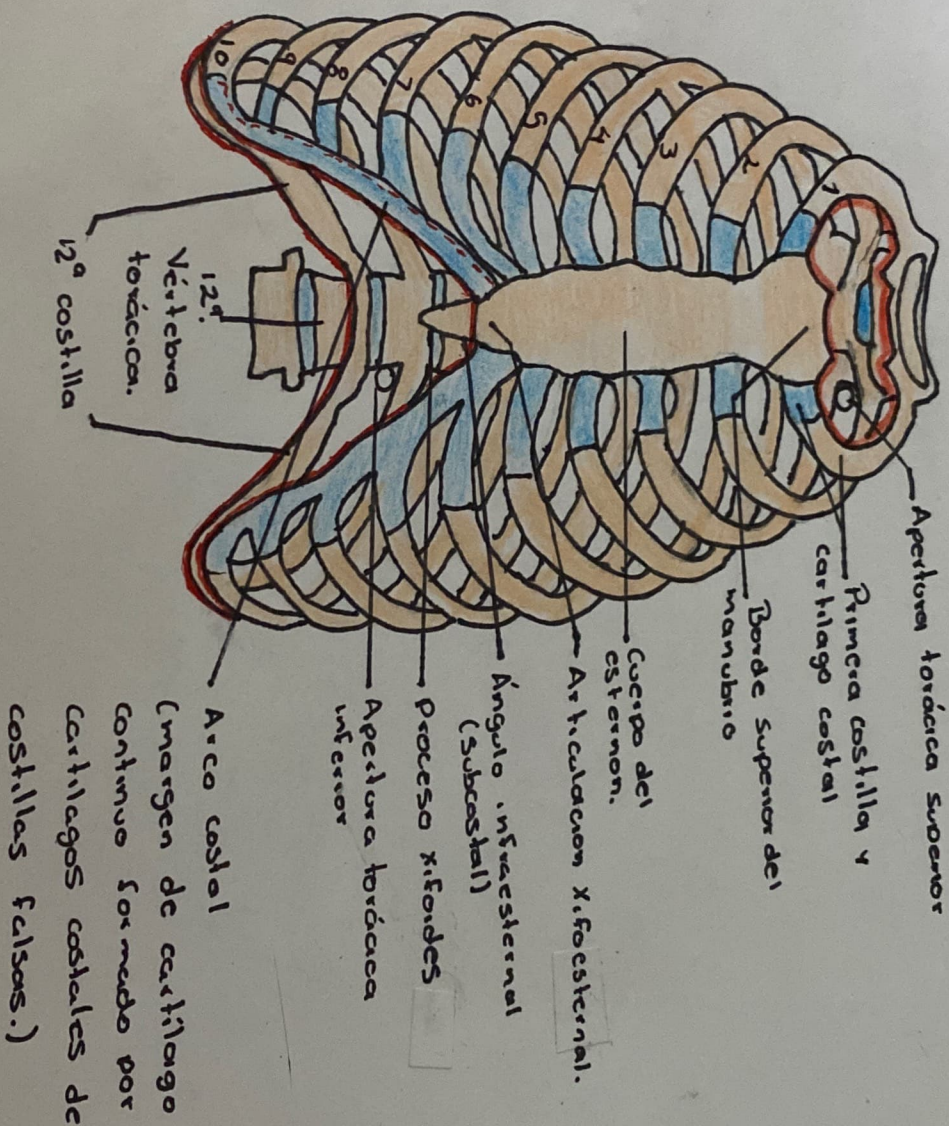 Apertura torácica superior
Primera costilla y
cartilago costal
Borde superior del
manubrio
Cuerpo del
esternon.
Articulacion xifoesternal.
Ángulo infraesternal
(subcostal)
Proceso xifoides
Apertura torácica
inferior
Arco costal
(margen de cartilago
continuo formado por
cartilagos costales de
costillas falsas.)
12ª.
Vértebra
torácica.
12ª costilla
1
2
3
4
5
6
7
8
9
10